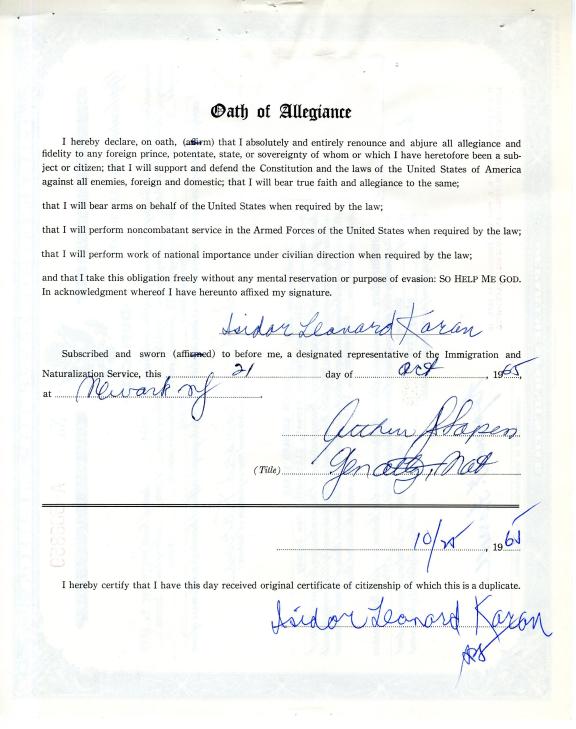 Oath of Allegiance
I hereby declare, on oath, (affirm) that I absolutely and entirely renounce and abjure all allegiance and
fidelity to any foreign prince, potentate, state, or sovereignty of whom or which I have heretofore been a sub-
ject or citizen; that I will support and defend the Constitution and the laws of the United States of America
against all enemies, foreign and domestic; that I will bear true faith and allegiance to the same;
that I will bear arms on behalf of the United States when required by the law;
that I will perform noncombatant service in the Armed Forces of the United States when required by the law;
that I will perform work of national importance under civilian direction when required by the law;
and that I take this obligation freely without any mental reservation or purpose of evasion: SO HELP ME GOD.
In acknowledgment whereof I have hereunto affixed my signature.
Isidor Leonard Karan
Subscribed and sworn (affirmed) to before me, a designated representative of the Immigration and
Naturalization Service, this 21 day of Oct, 1965,
at Newark NJ.
Arthur
(Title) Gen Atty, Nat
10/25, 1965
I hereby certify that I have this day received original certificate of citizenship of which this is a duplicate.
Isidor Leonard Karan